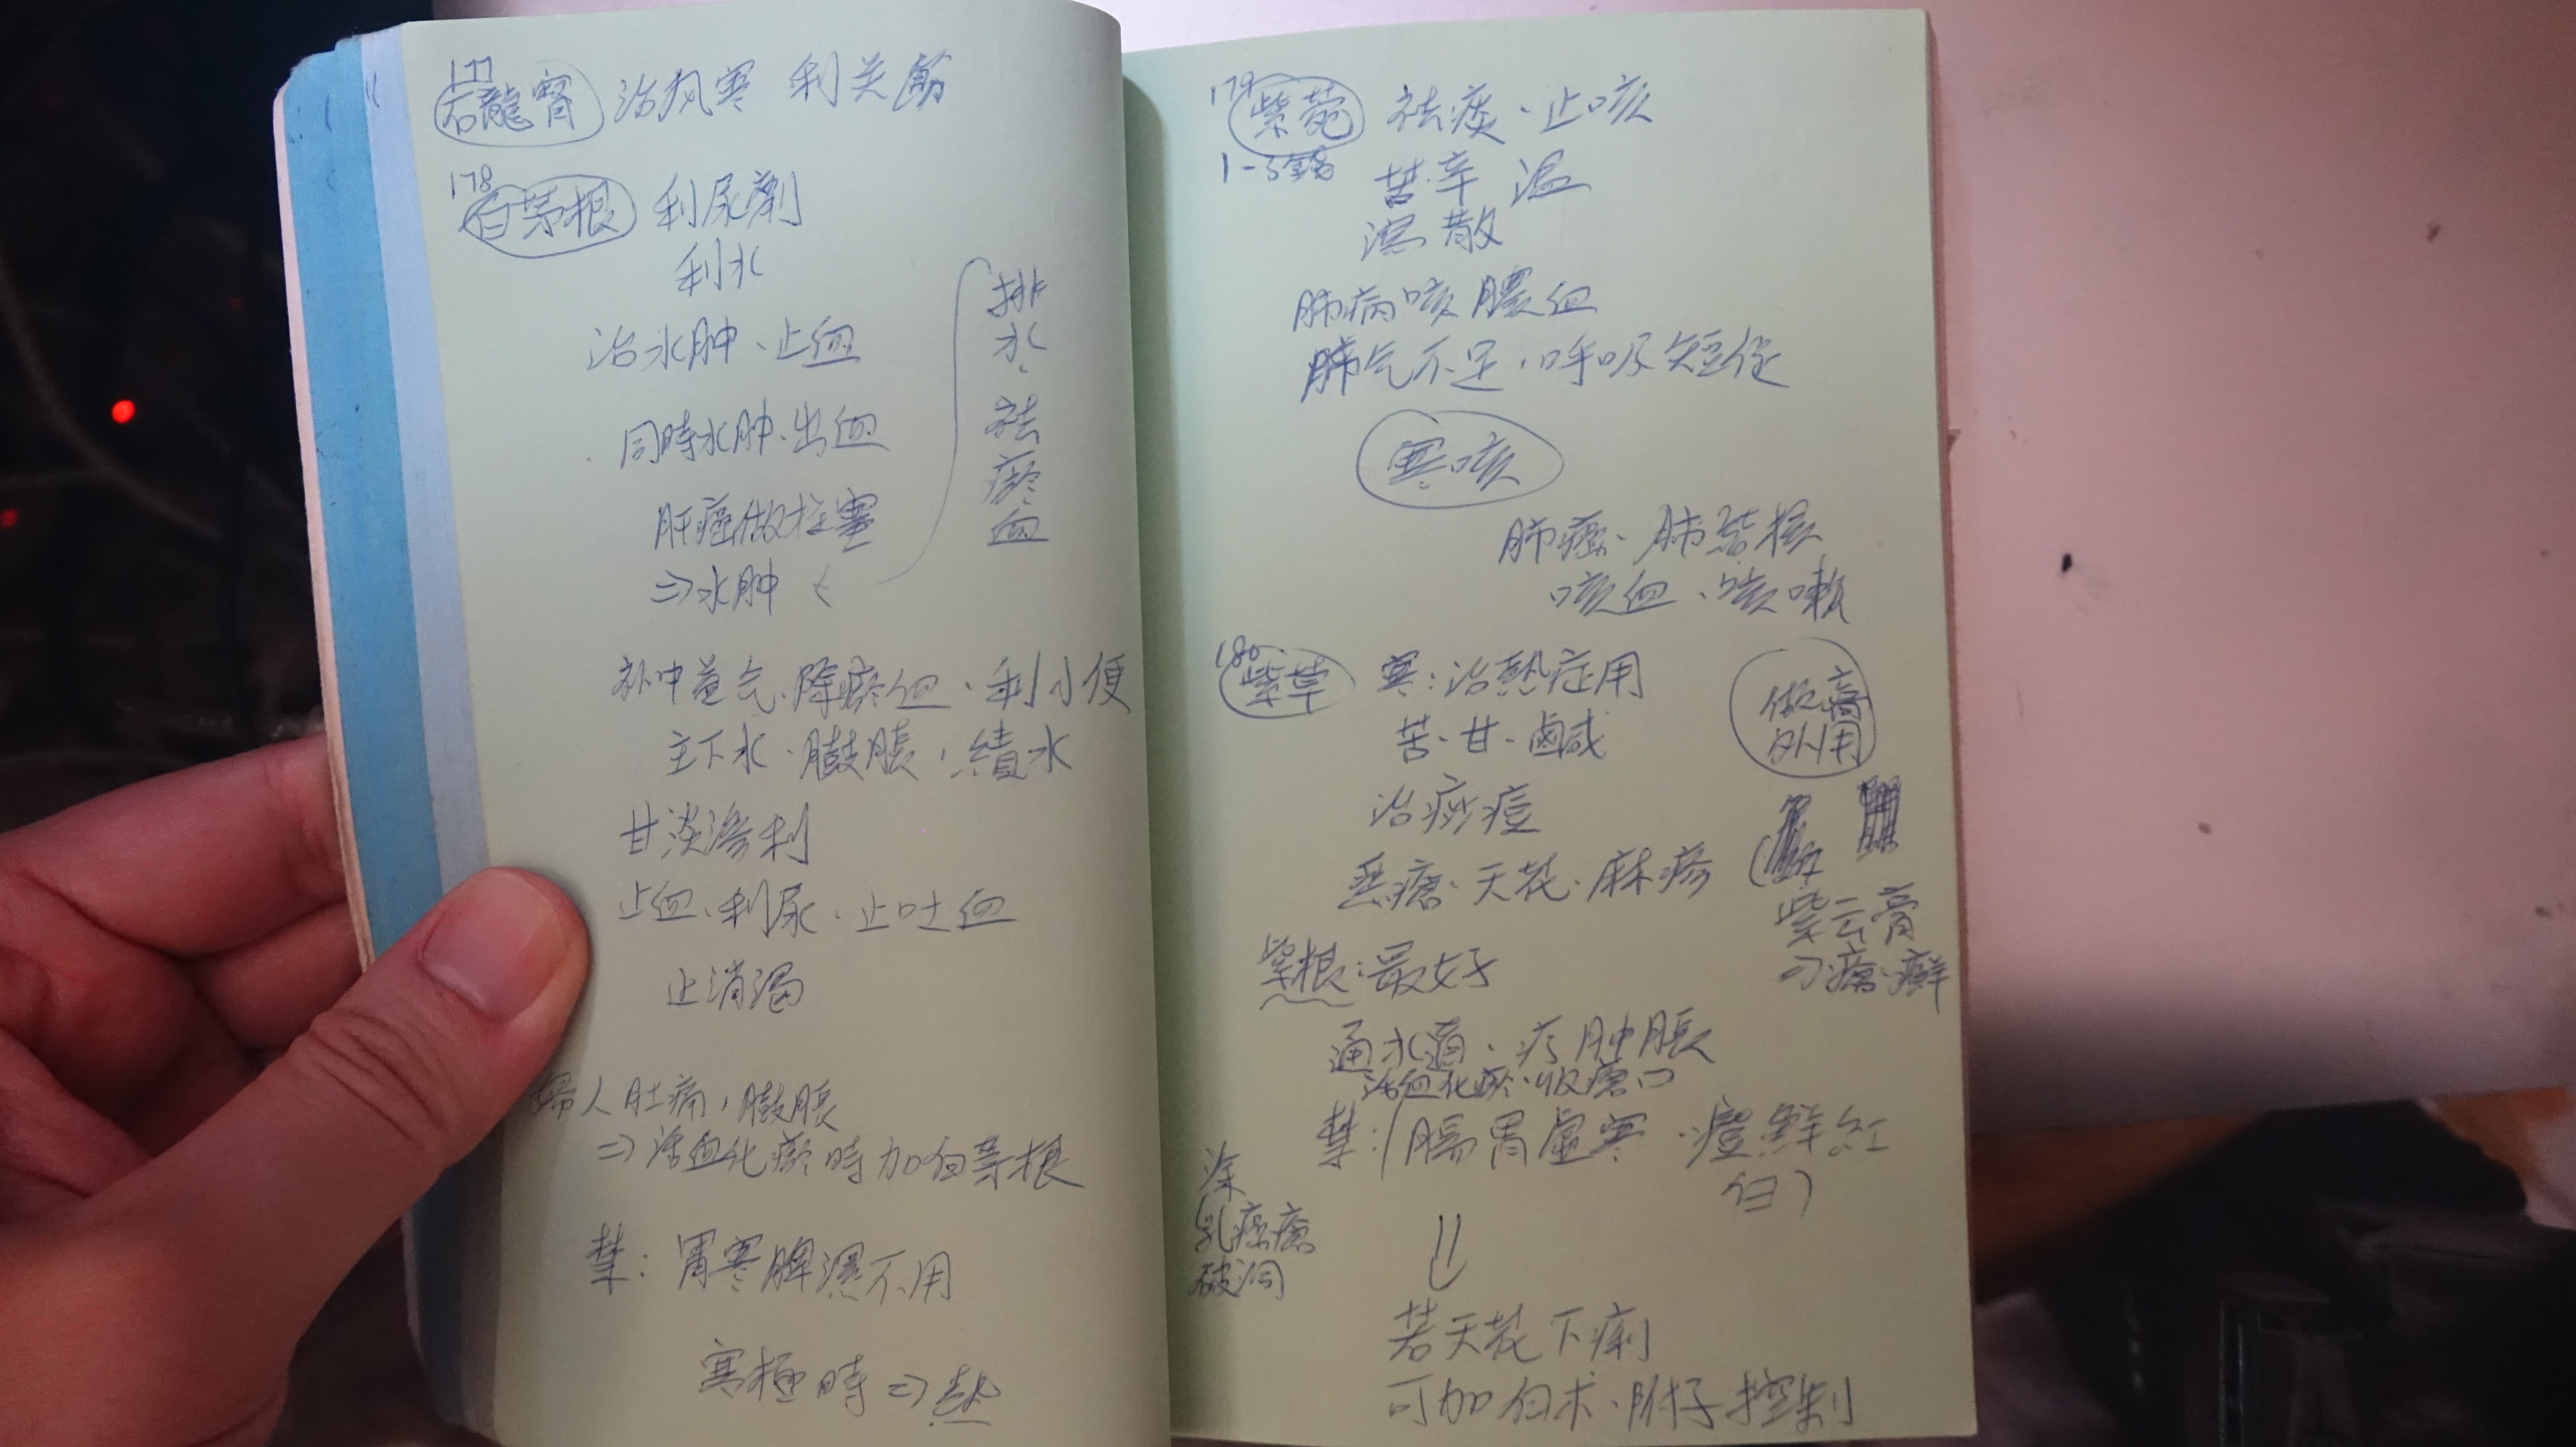 177
石龍芮 治风寒 利关節
178
白茅根 利尿劑
利水
治水肿、止血
同時水肿、出血
肝癌做栓塞
⇒水肿
排水、祛瘀血
补中益气、降瘀血、利小便
主下水、臌脹,積水
甘淡滲利
止血、利尿、止吐血
止消渴
婦人肚痛,臌脹
⇒活血化瘀時加白茅根
禁:胃寒脾濕不用
寒極時⇒热
179
紫菀 祛痰、止咳
1-3錢 苦.辛 温
瀉 散
肺病咳膿血
肺气不足,呼吸短促
寒咳
肺癌、肺結核
咳血、咳嗽
180
紫草 寒:治熱症用
苦、甘、鹵咸
治痧痘
惡瘡、天花、麻疹
做膏
外用
紫云膏
⇒瘡、癬
紫根:最好
通水道、疗肿脹
活血化瘀、收瘡口
禁:腸胃虛寒
白)
涂
破洞
若天花下痢
可加白术、附子控制